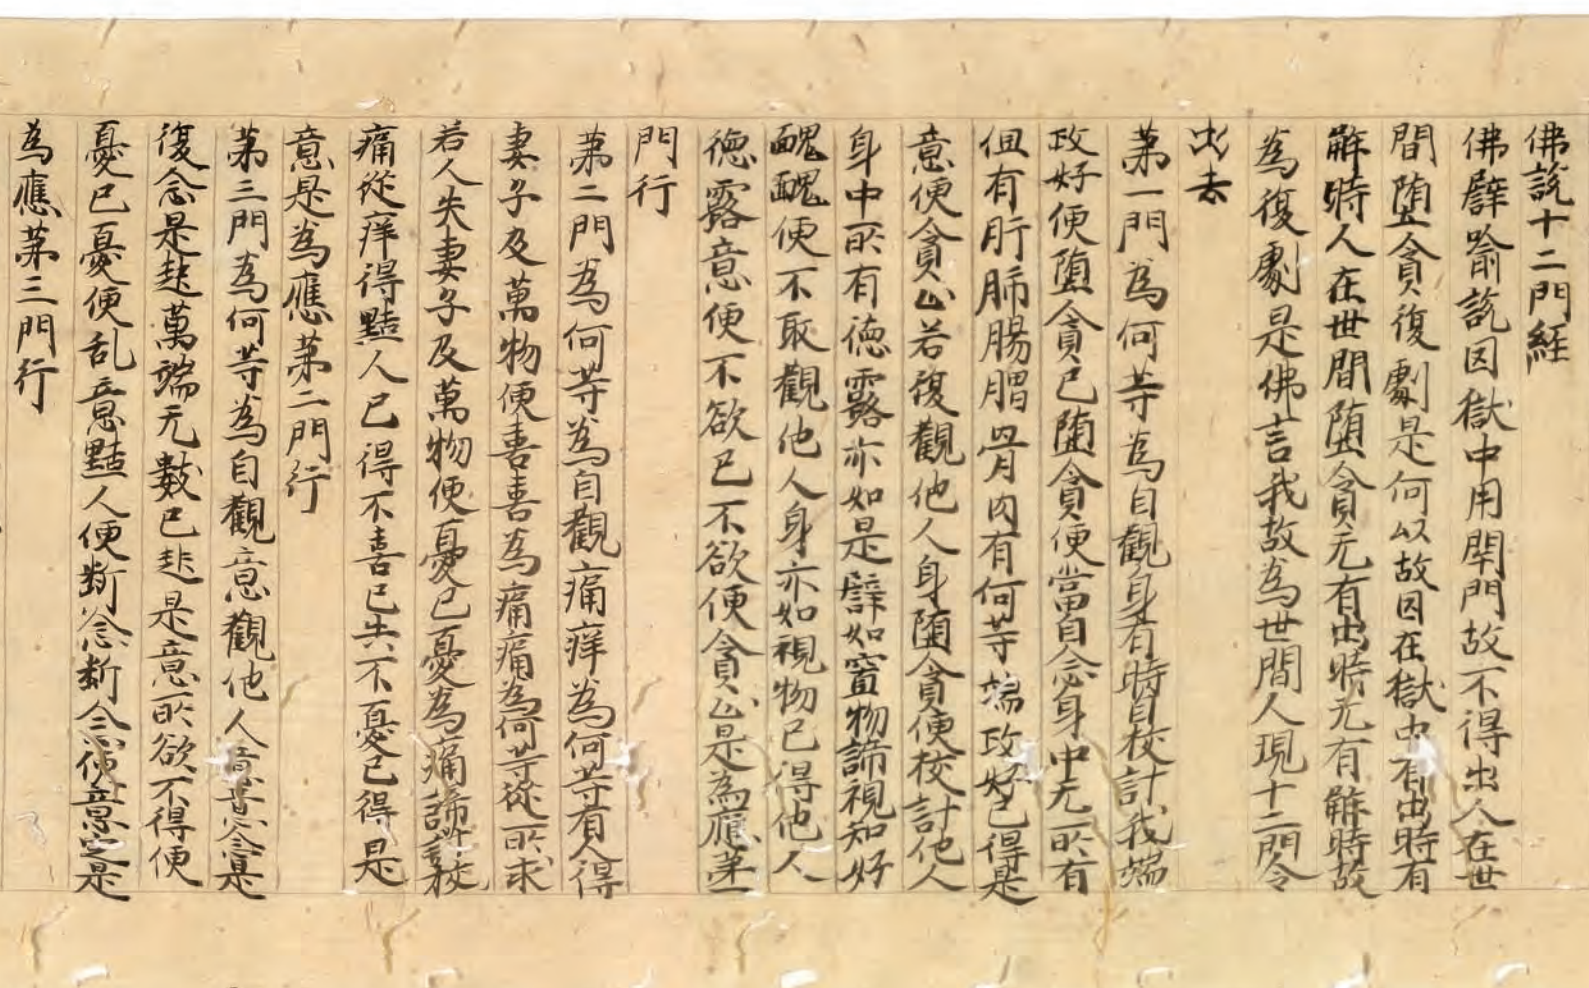 佛説十二門経
佛譬喻説因獄中用閇門故不得出人在世
間堕貪復劇是何以故因在獄中有出時有
解時人在世間堕貪无有出時无有解時故
為復劇是佛言我故為世間人現十二門令
出去
苐一門為何等為自觀身有時自校計我端
政好便堕貪已堕貪便當自念身中无所有
但有肝肺腸胃骨肉有何等端政好已得是
意便貪止若復觀他人身堕貪便校計他人
身中所有徳露亦如是譬如窗物諦視知好
醜醜便不取觀他人身亦如視物已得他人
徳露意便不欲已不欲便貪止是為應苐一
門行
苐二門為何等為自觀痛痒為何等有人得
妻子及萬物便喜喜為痛痛為何等從所求
若人失妻子及萬物便憂已憂為痛諦校
痛從痒得黠人已得不喜已失不憂已得是
意是為應苐二門行
苐三門為何等為自觀意觀他人意意念是
復念是起萬端无數已起是意所欲不得便
憂已憂便乱意黠人便断念断念便意定是
為應苐三門行